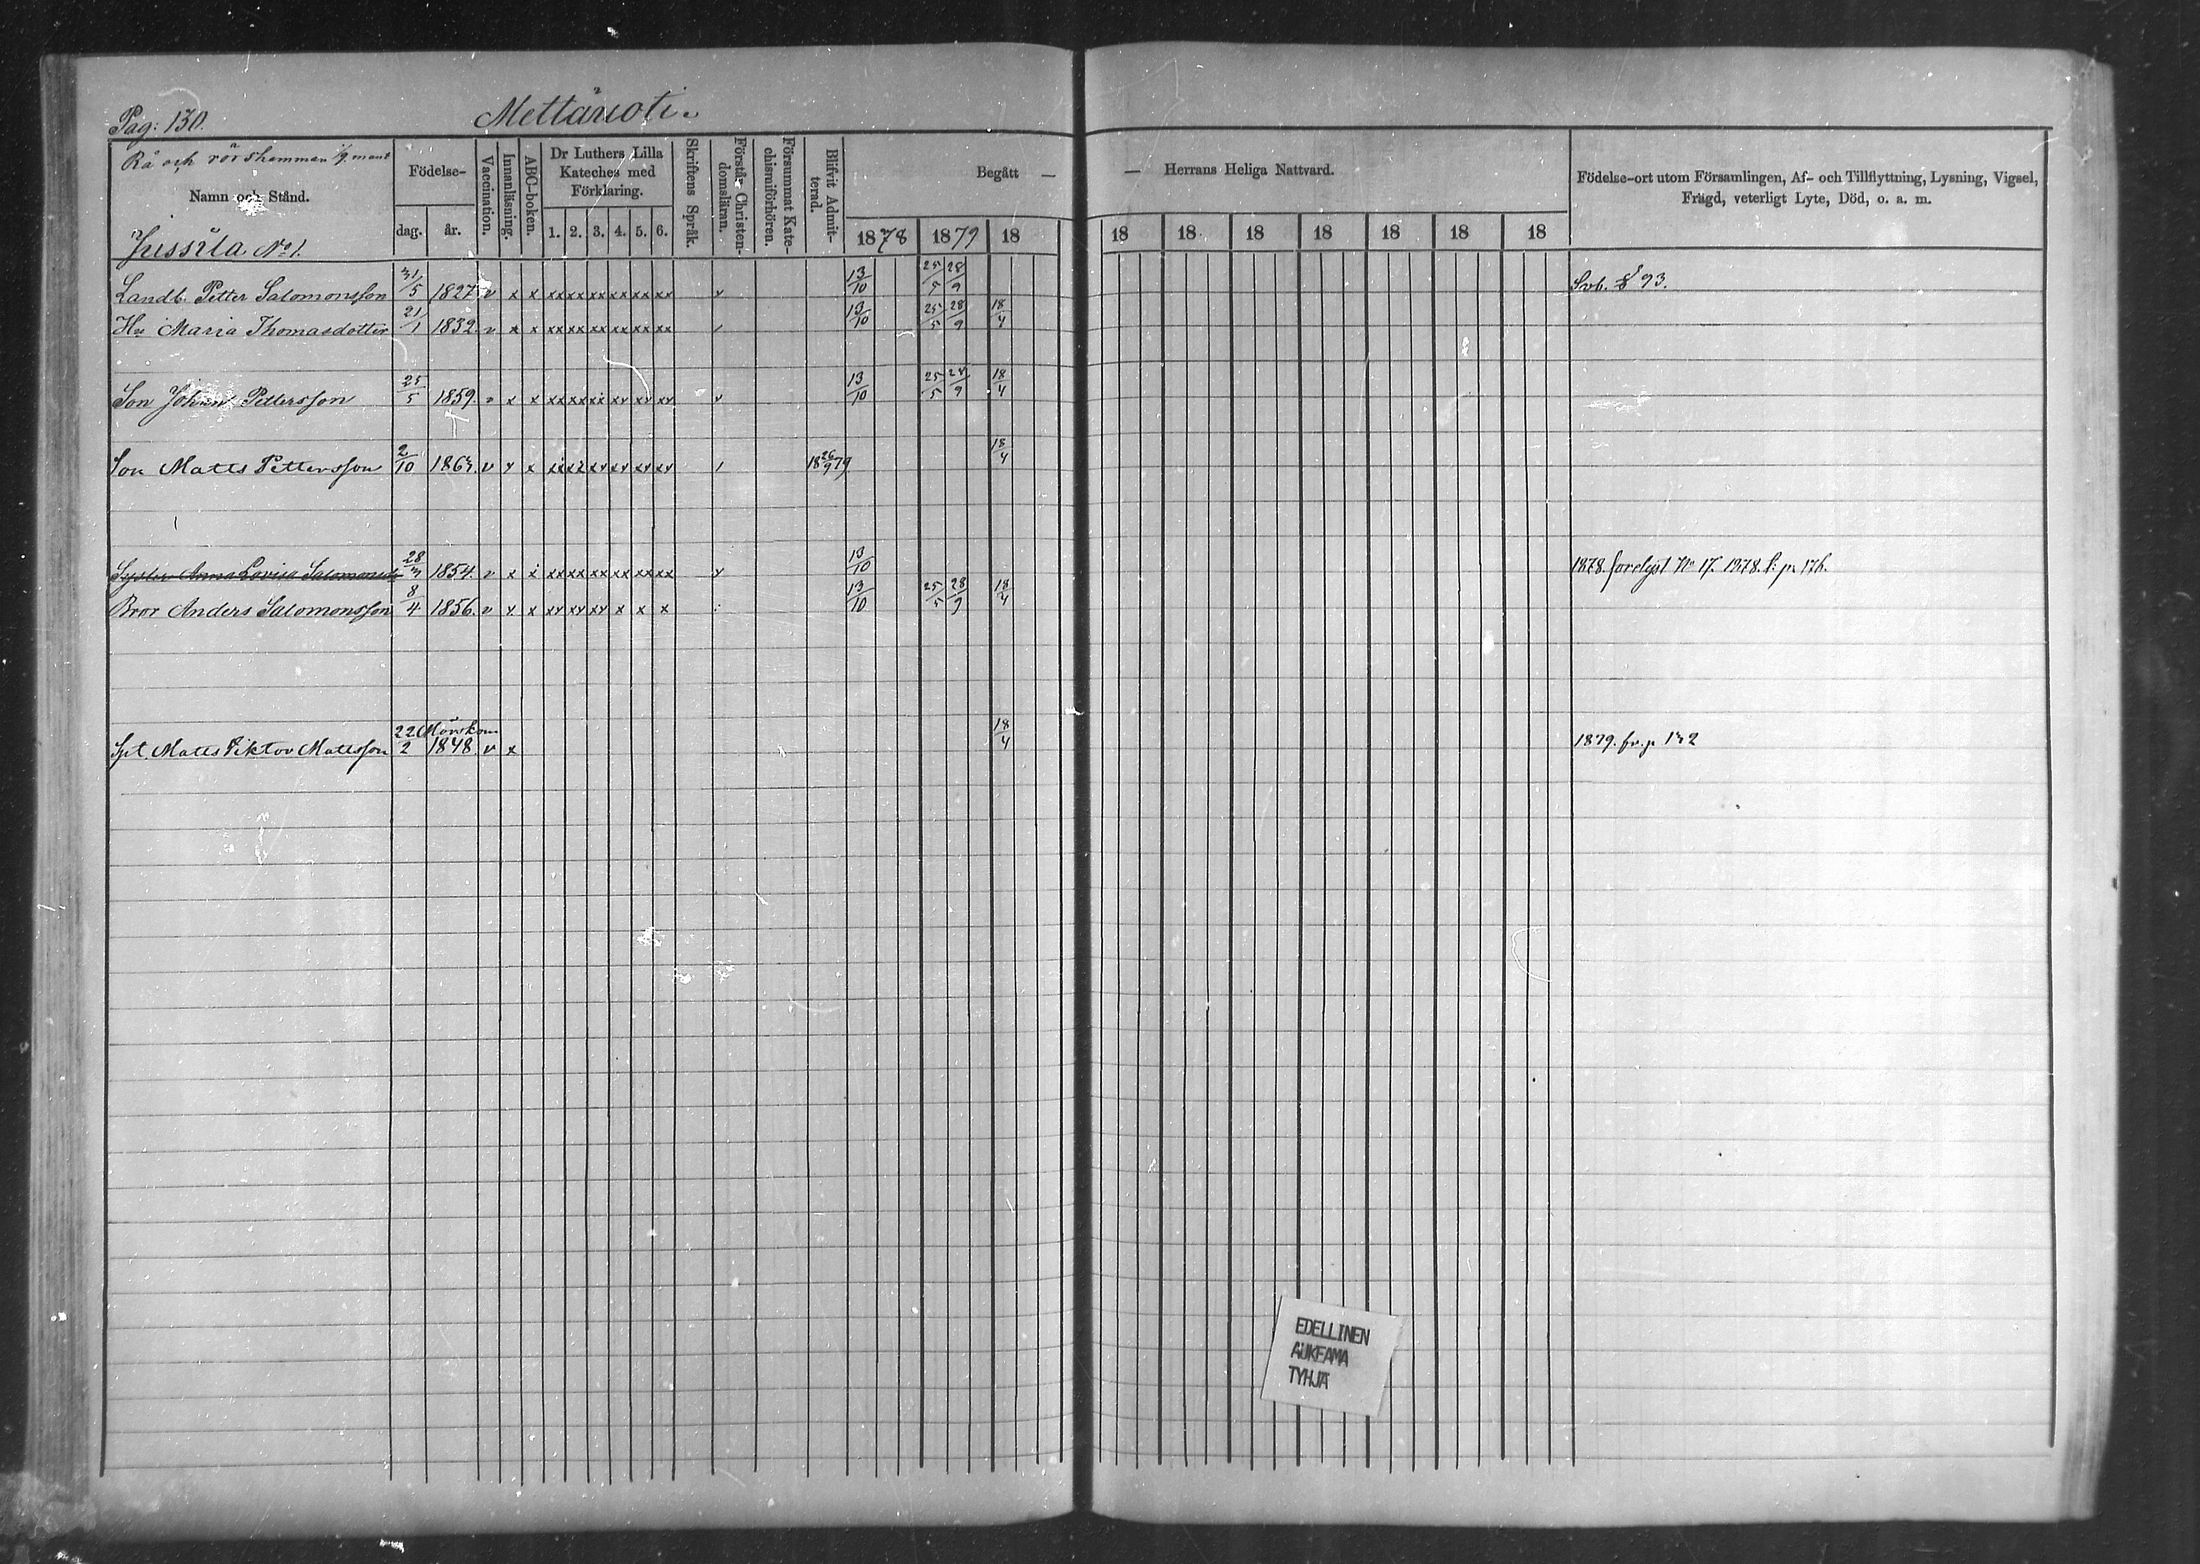 Pag: 130.
Mettänoti.
Rå och rörshemman 1/9 mant
Namn och Stånd.
Jussila No 1.
Födelse-
dag.
år.
Vaccination.
Innanläsning.
ABC-boken.
Dr Luthers Lilla
Kateches med
Förklaring.
1. 2. 3. 4. 5. 6.
Skriftens Språk.
Förstår Christen-
domsläran.
Försummat Kate-
chismiförhören.
Blifvit Admit-
terad.
Begått —
— Herrans Heliga Nattvard.
1878 1879 18 18 18 18 18 18 18 18
Födelse-ort utom Församlingen, Af- och Tillflyttning, Lysning, Vigsel,
Frägd, veterligt Lyte, Död, o. a. m.
Landb. Petter Salomonsson 31/5 1827 v x x xx xx xx xx xx xx v 13/10 25/5 28/9
Hu Maria Thomasdotter 21/1 1832. v x x xx xx xx xx xx xx / 13/10 25/5 28/9 18/4
Son Johan Pettersson 25/5 1859. v x x xx xx xx xv xv xv v 13/10 25/5 28/9 18/4
Son Matts Pettersson 2/10 v x 18 26/9 79 18/4
Syster Anna Lovisa Salomonsd 28/3 1854. v x x xx xx xx xx xx xx v 13/10 1878. forelyst No 17. 1878.
Bror Anders Salomonsson 8/4 1856. v x x xv xv xv x x x 13/10 25/5 28/9 18/4
22 Mörskom
Spt. Matts Viktor Mattsson 2 1848. v x 18/4 1879. fr. p
EDELLINEN
AUKEAMA
TYHJÄ